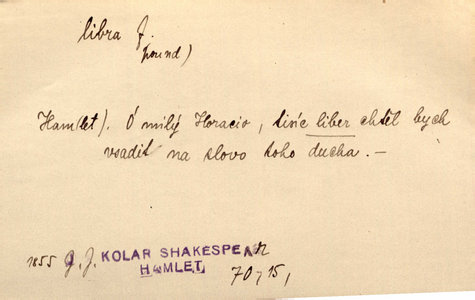 libra f.
pound)
Ham(let). Ó milý Horacio, tisíc liber chtěl bych
vsadit na slovo toho ducha. —
1855 J. J. KOLAR SHAKESPEAR
HAMLET 70, 15,